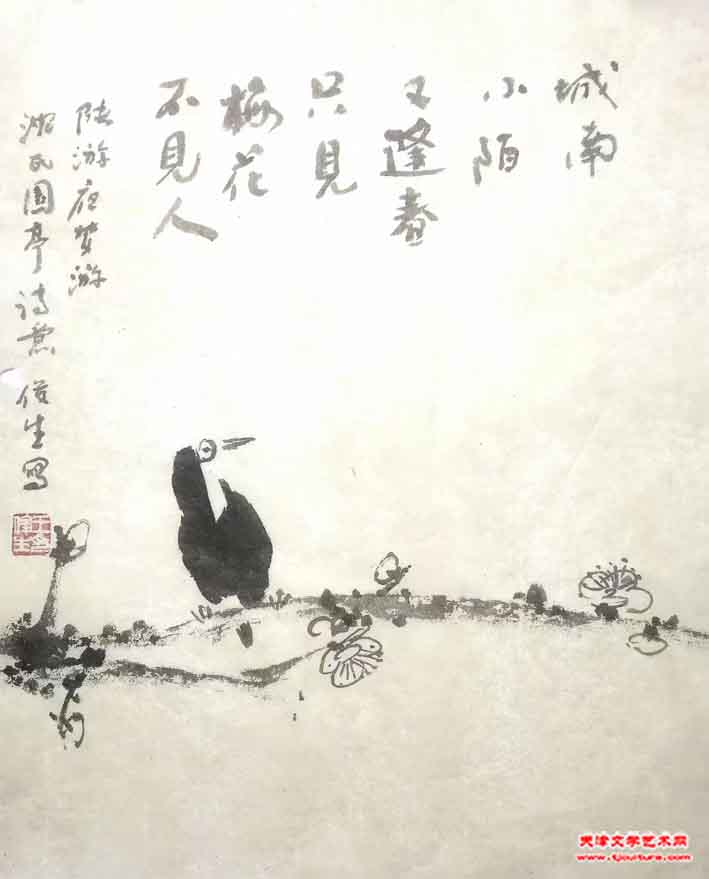 城南
小陌
又逢春
只見
梅花
不見人
陸游夜梦游
沈氏園亭詩意 俊生寫
天津文学艺术网
www.tjculture.com